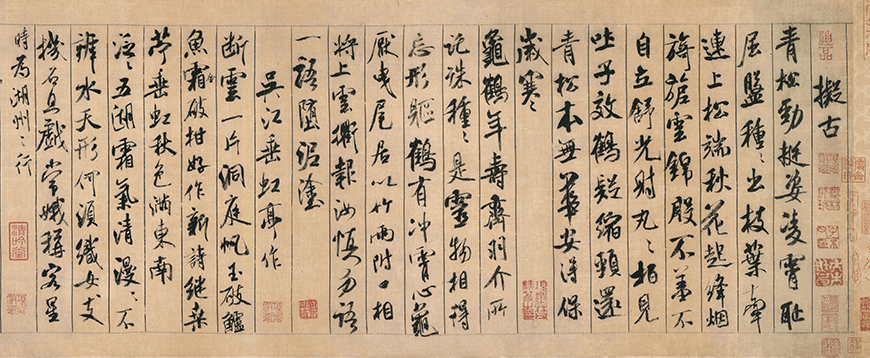 擬古
青松勁挺姿凌霄恥
屈盤種々出枝葉牽
連上松端秋花起絳烟
旖旎雲錦殷不羞不
自立舒光射丸々柏見
吐子效鶴疑縮頸還
青松本無華安得保
歲寒
龜鶴年壽齊羽介所
託殊種々是靈物相得
忘形軀鶴有沖霄心龜
厭曳尾居以竹兩附口相
將上雲衢報汝慎勿語
一語墮泥塗
吳江垂虹亭作
断雲一片洞庭帆玉破鱸
魚霜破柑好作新詩繼桑
苧垂虹秋色滿東南
泛々五湖霜氣清漫々不
辨水天形何須織女支
機石且戲常娥稱客星
時為湖州之行